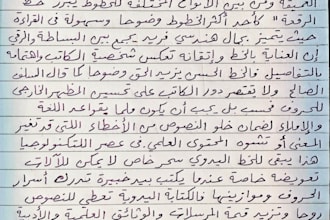 العميقة ومن بين الأنواع المختلفة للخطوط يبرز خط
الرقعة" كأحد أكثر الخطوط وضوحا وسهولة في القراءة
حيث يتميز بجمال هندسي فريد يجمع بين البساطة والرقي
إن العناية بالخط وإتقانه تعكس شخصية الكاتب واهتمامه
بالتفاصيل فالخط الحسن يزيد الحق وضوحا كما قال السلف
الصالح ولا يقتصر دور الكاتب على تحسين المظهر الخارجي
للحروف فحسب بل يجب أن يكون ملما بقواعد اللغة
والإملاء لضمان خلو النصوص من الأخطاء اللتي قد تغير
المعنى أو تشوه المحتوى العلمي في عصر التكنولوجيا
هذا يبقى للخط اليدوي سحر خاص لا يمكن للآلات
تعويضة خاصة عندما يكتب بيد خبيرة تدرك أسرار
الحروف وموازينها فالكتابة اليدوية تعطي للنصوص
روحا وتزيد قيمة المراسلات والوثائق العلمية والأدبية